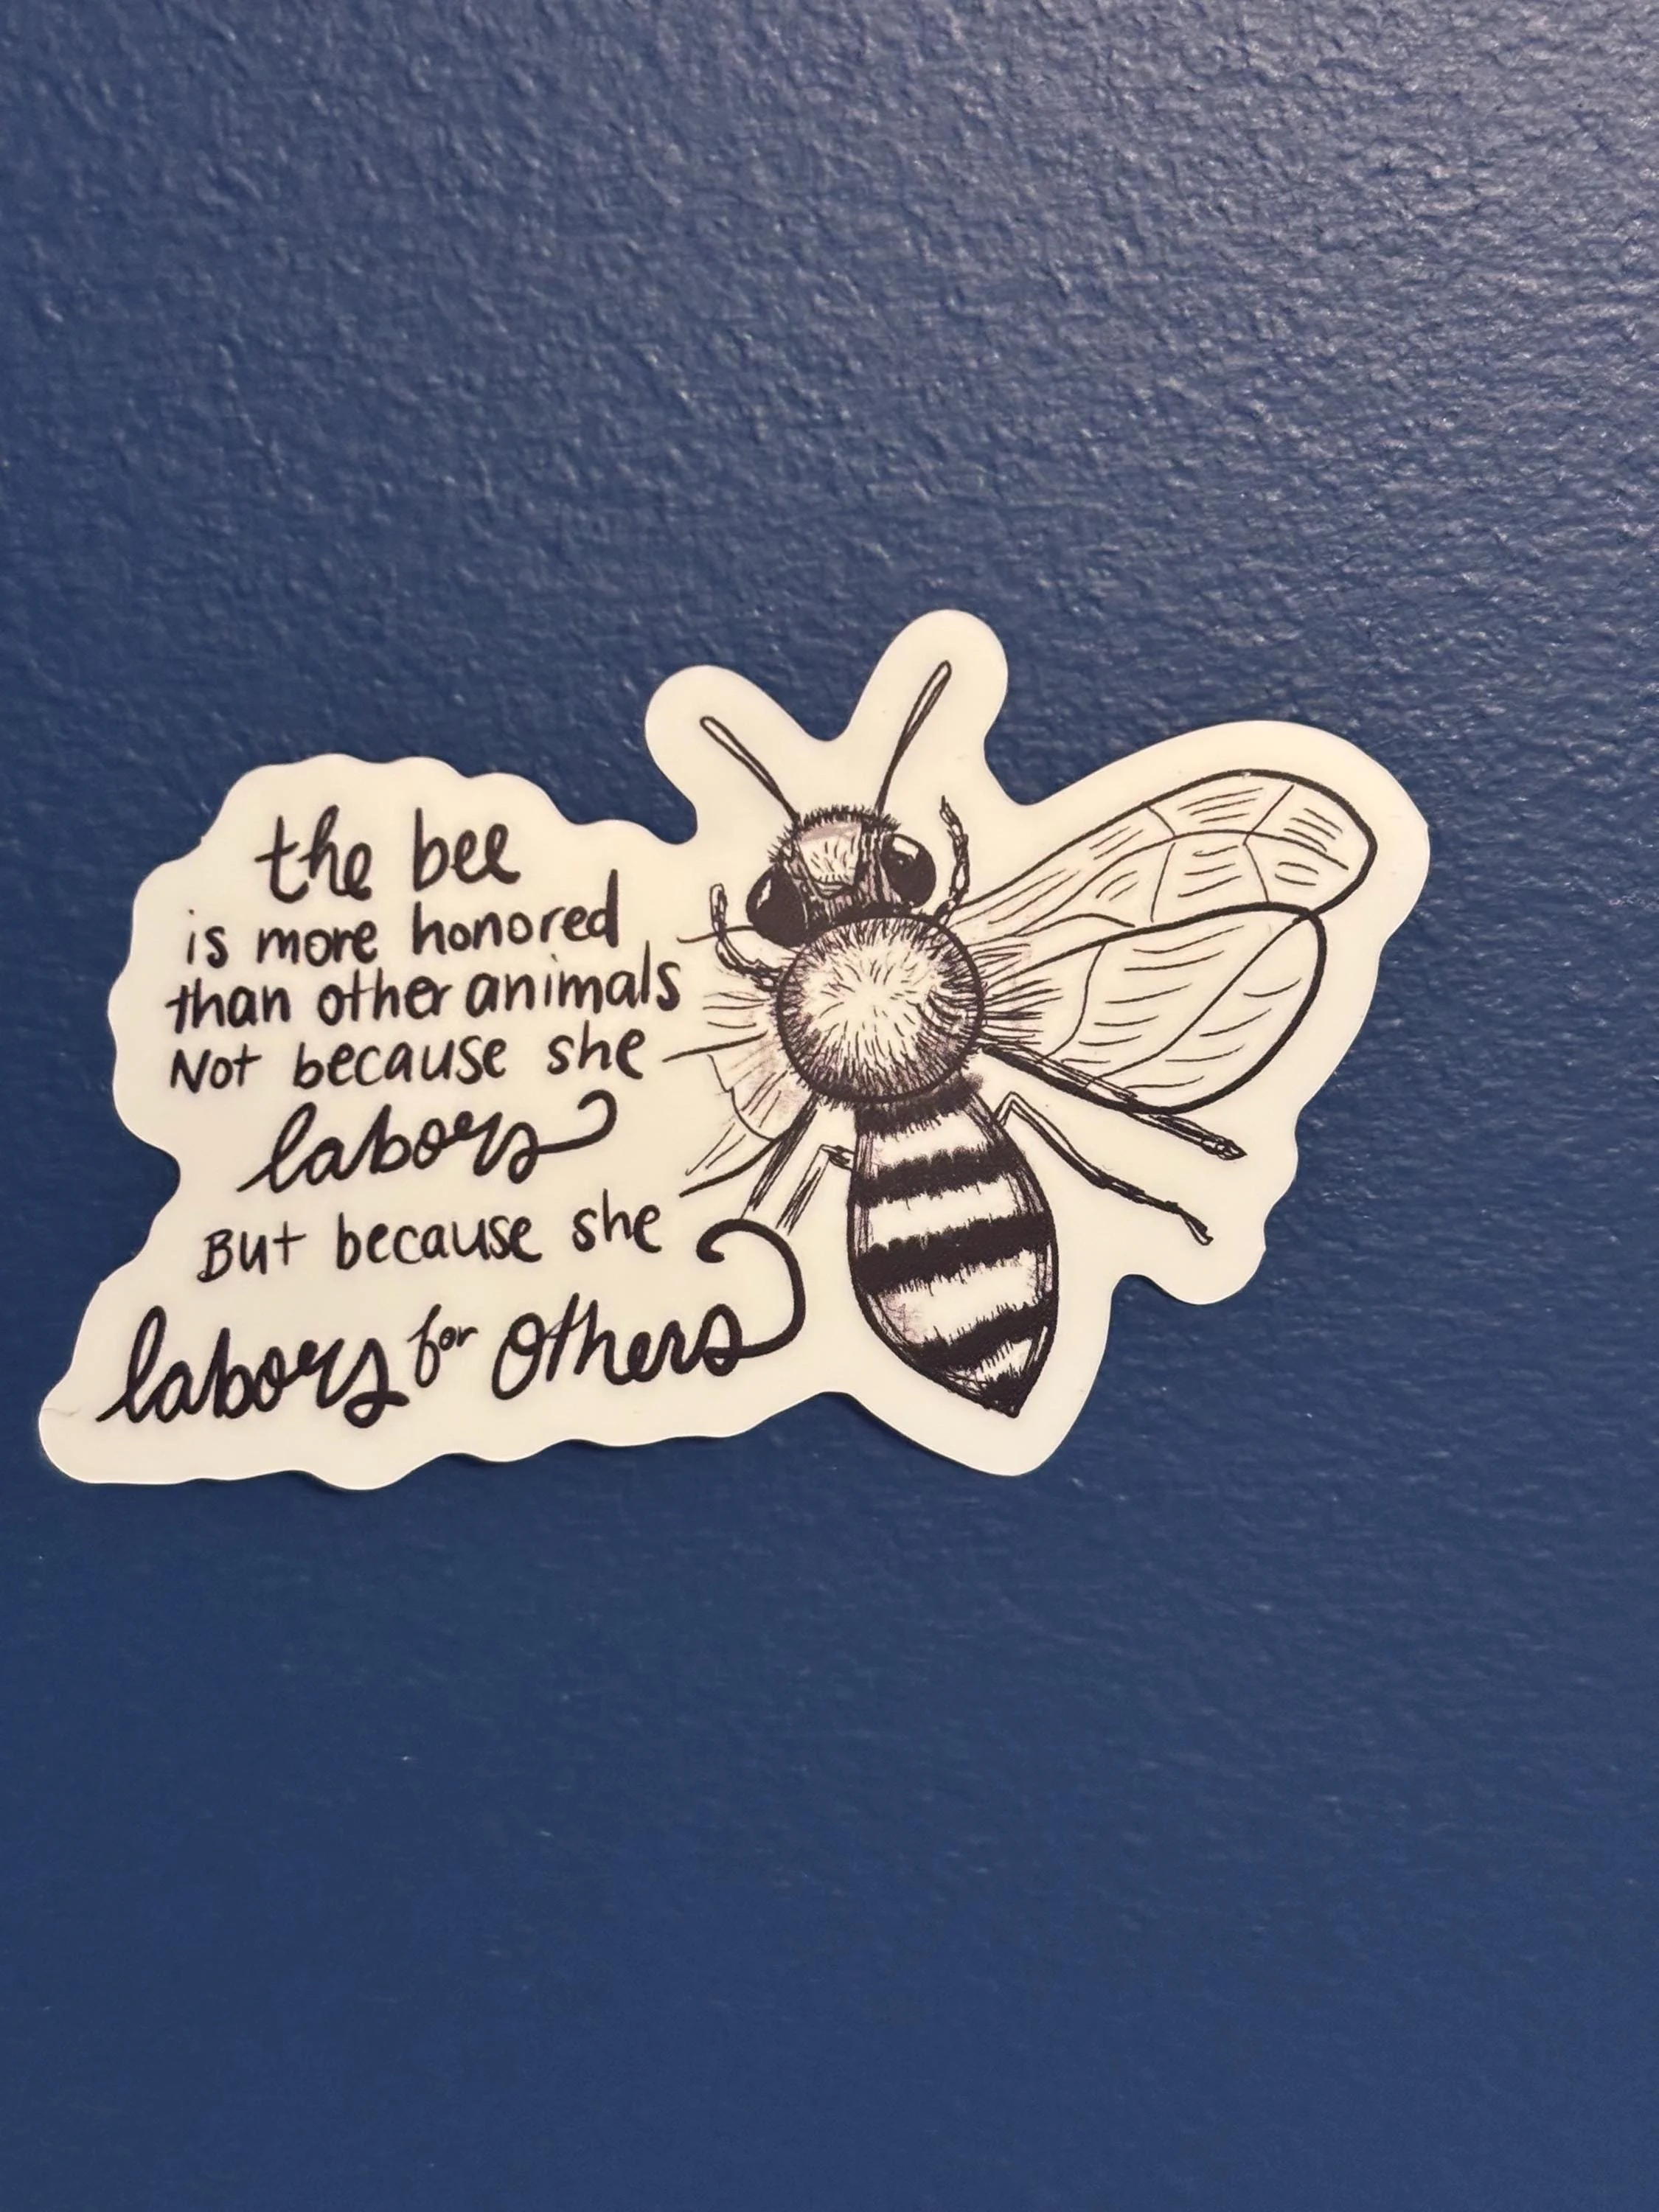 the bee
is more honored
than other animals
Not because she
labors
But because she
labors for others